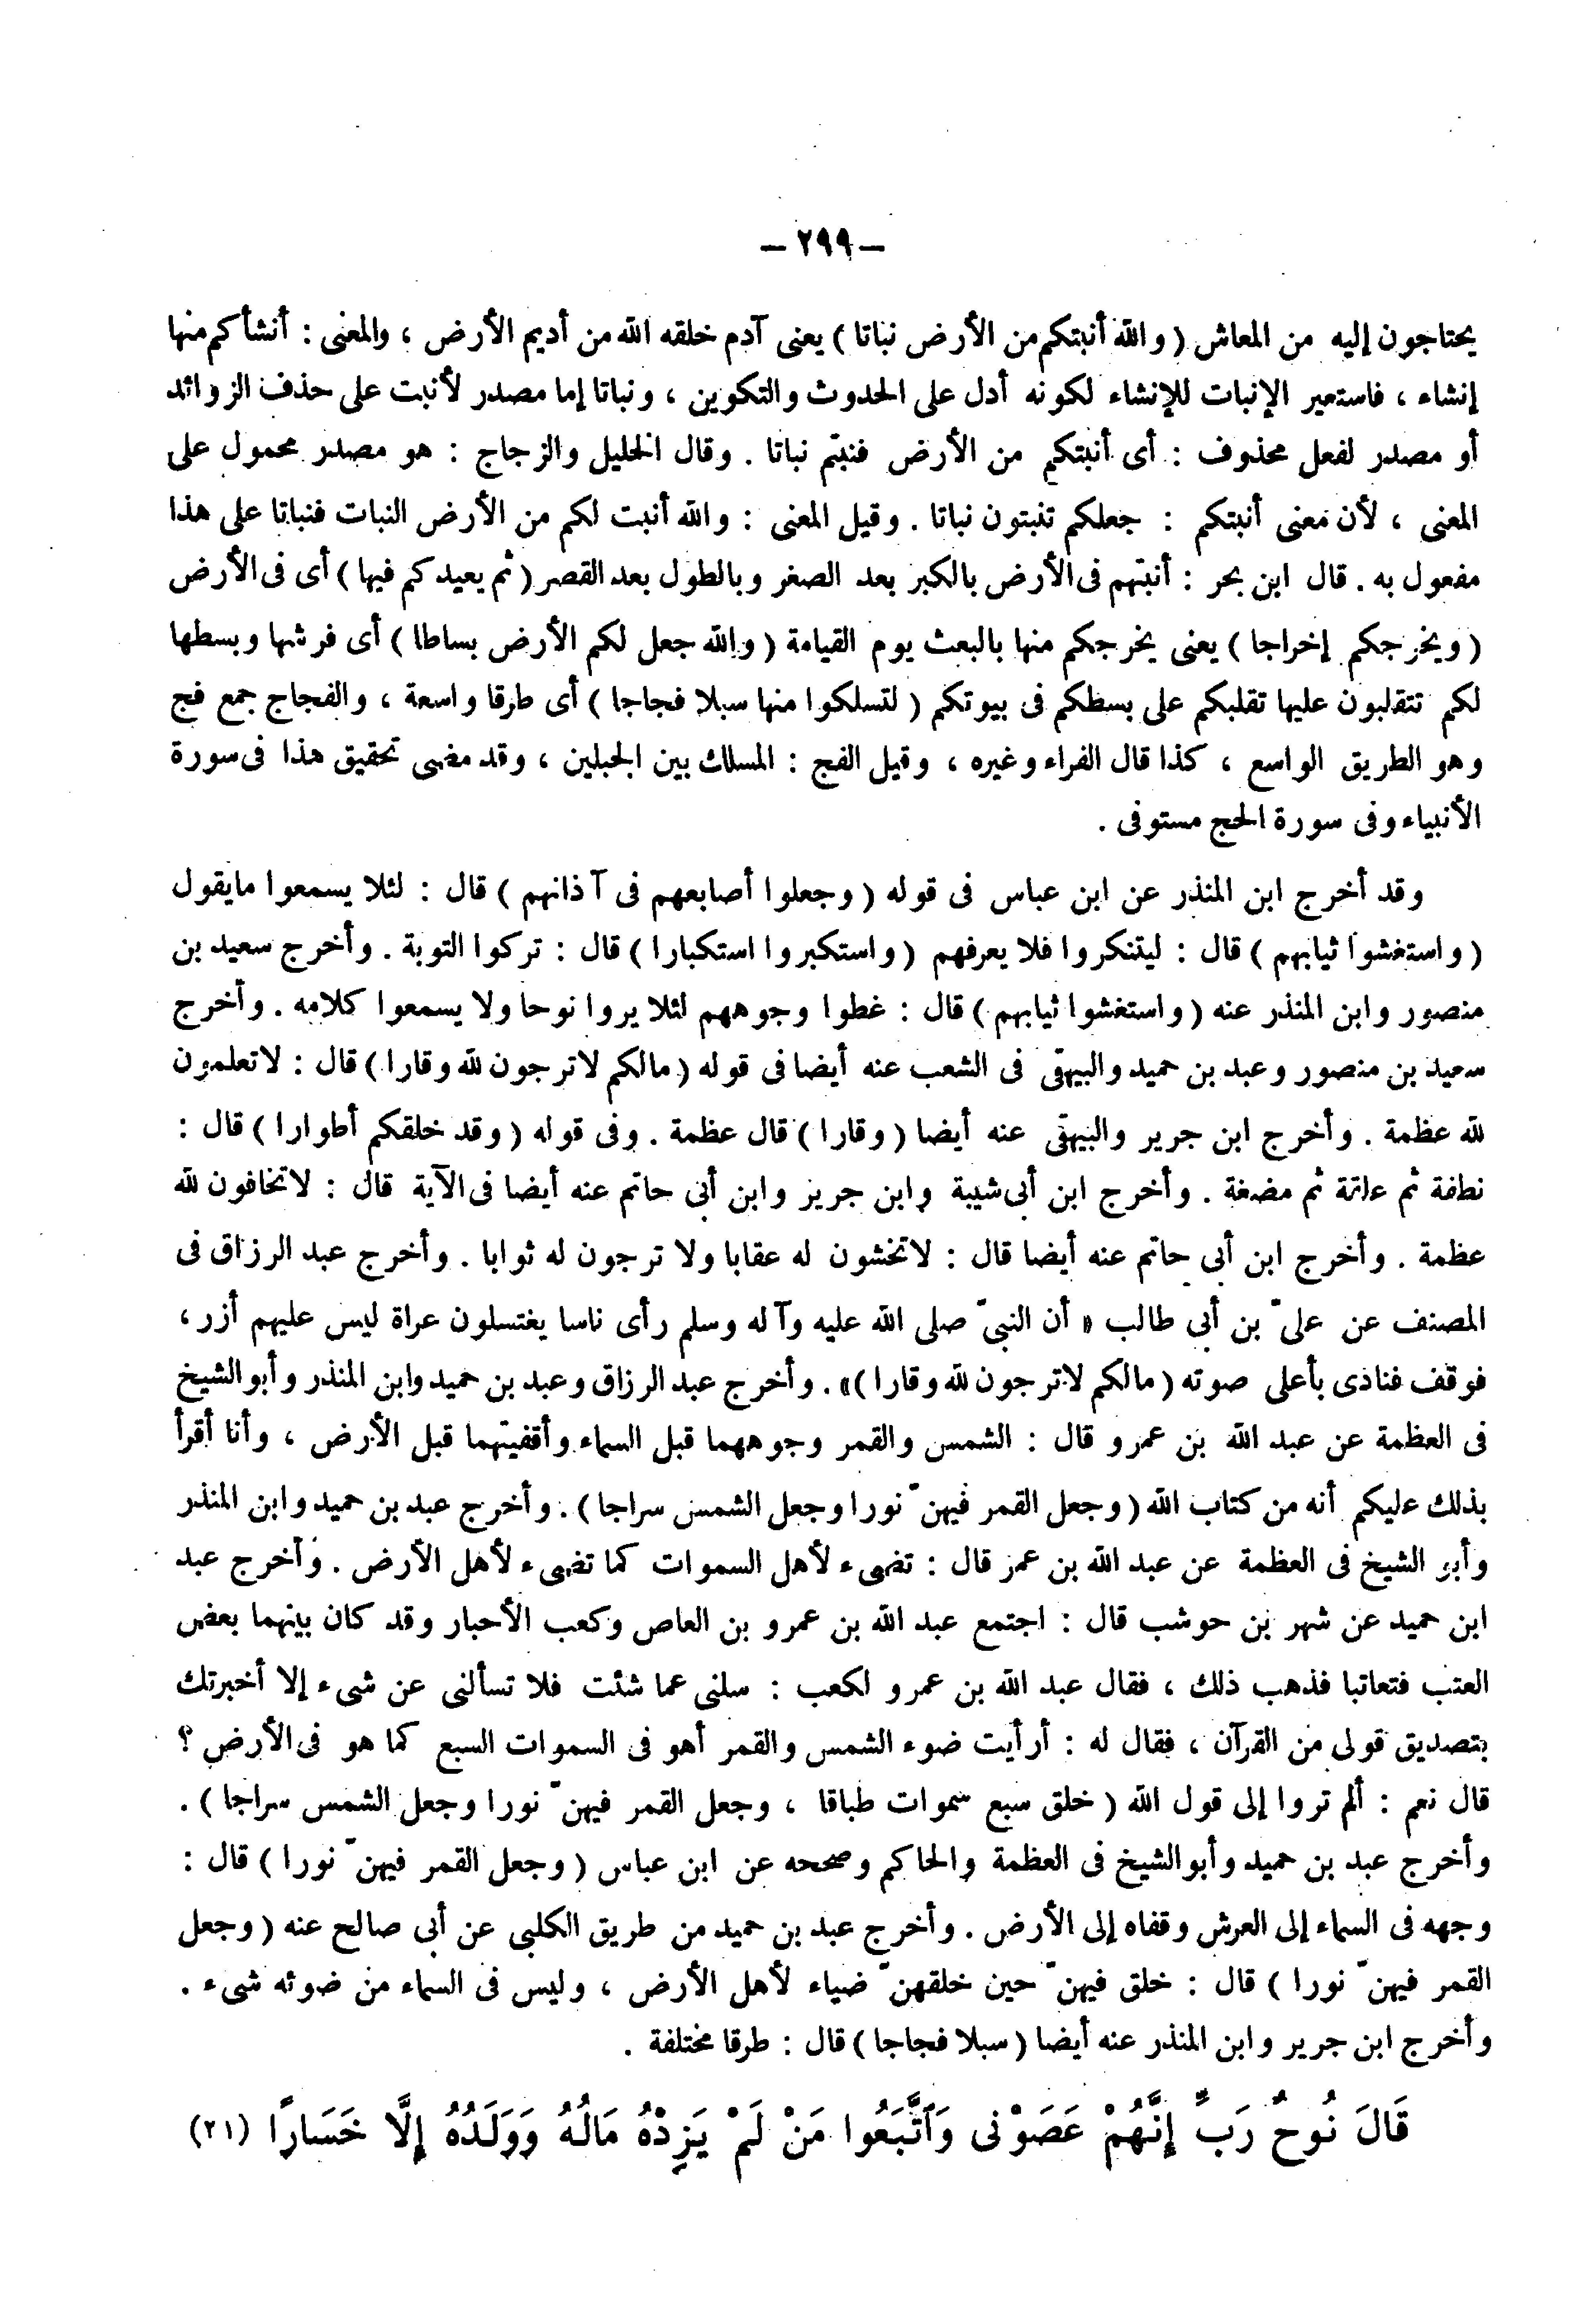 — ٢٩٩ —
يحتاجون إليه من المعاش ( والله أنبتكم من الأرض نباتا ) يعنى آدم خلقه الله من أديم الأرض ، والمعنى : أنشأكم منها
إنشاء ، فاستعير الإنبات للإنشاء لكونه أدل على الحدوث والتكوين ، ونباتا إما مصدر لأنبت على حذف الزوائد
أو مصدر لفعل محذوف : أى أنبتكم من الأرض فنبتم نباتا . وقال الخليل والزجاج : هو مصدر محمول على
المعنى ، لأن معنى أنبتكم : جعلكم تنبتون نباتا . وقيل المعنى : والله أنبت لكم من الأرض النبات فنباتا على هذا
مفعول به . قال ابن بحر : أنبتهم فى الأرض بالكبر بعد الصغر وبالطول بعد القصر ( ثم يعيدكم فيها ) أى فى الأرض
( ويخرجكم إخراجا ) يعنى يخرجكم منها بالبعث يوم القيامة ( والله جعل لكم الأرض بساطا ) أى فرشها وبسطها
لكم تتقلبون عليها تقلبكم على بسطكم فى بيوتكم ( لتسلكوا منها سبلا فجاجا ) أى طرقا واسعة ، والفجاج جمع فج
وهو الطريق الواسع ، كذا قال الفراء وغيره ، وقيل الفج : المسلك بين الجبلين ، وقد مضى تحقيق هذا فى سورة
الأنبياء وفى سورة الحج مستوفى .
وقد أخرج ابن المنذر عن ابن عباس فى قوله ( وجعلوا أصابعهم فى آذانهم ) قال : لئلا يسمعوا مايقول
( واستغشوا ثيابهم ) قال : ليتنكروا فلا يعرفهم ( واستكبروا استكبارا ) قال : تركوا التوبة . وأخرج سعيد بن
منصور وابن المنذر عنه ( واستغشوا ثيابهم ) قال : غطوا وجوههم لئلا يروا نوحا ولا يسمعوا كلامه . وأخرج
سعيد بن منصور وعبد بن حميد والبيهقى فى الشعب عنه أيضا فى قوله ( مالكم لاترجون لله وقارا ) قال : لاتعلمون
لله عظمة . وأخرج ابن جرير والبيهقى عنه أيضا ( وقارا ) قال عظمة . وفى قوله ( وقد خلقكم أطوارا ) قال :
نطفة ثم علقة ثم مضغة . وأخرج ابن أبى شيبة وابن جرير وابن أبى حاتم عنه أيضا فى الآية قال : لاتخافون لله
عظمة . وأخرج ابن أبى حاتم عنه أيضا قال : لاتخشون له عقابا ولا ترجون له ثوابا . وأخرج عبد الرزاق فى
المصنف عن علىّ بن أبى طالب « أن النبىّ صلى الله عليه وآله وسلم رأى ناسا يغتسلون عراة ليس عليهم أزر ،
فوقف فنادى بأعلى صوته ( مالكم لاترجون لله وقارا )» . وأخرج عبد الرزاق وعبد بن حميد وابن المنذر وأبوالشيخ
فى العظمة عن عبد الله بن عمرو قال : الشمس والقمر وجوههما قبل السماء وأقفيتهما قبل الأرض ، وأنا أقرأ
بذلك عليكم أنه من كتاب الله ( وجعل القمر فيهنّ نورا وجعل الشمس سراجا ) . وأخرج عبد بن حميد وابن المنذر
وأبو الشيخ فى العظمة عن عبد الله بن عمر قال : تضىء لأهل السموات كما تضىء لأهل الأرض . وأخرج عبد
ابن حميد عن شهر بن حوشب قال : اجتمع عبد الله بن عمرو بن العاص وكعب الأحبار وقد كان بينهما بعض
العتب فتعاتبا فذهب ذلك ، فقال عبد الله بن عمرو لكعب : سلنى عما شئت فلا تسألنى عن شىء إلا أخبرتك
بتصديق قولى من القرآن ، فقال له : أرأيت ضوء الشمس والقمر أهو فى السموات السبع كما هو فى الأرض ؟
قال نعم : ألم تروا إلى قول الله ( خلق سبع سموات طباقا ، وجعل القمر فيهنّ نورا وجعل الشمس سراجا ) .
وأخرج عبد بن حميد وأبوالشيخ فى العظمة والحاكم وصححه عن ابن عباس ( وجعل القمر فيهنّ نورا ) قال :
وجهه فى السماء إلى العرش وقفاه إلى الأرض . وأخرج عبد بن حميد من طريق الكلبى عن أبى صالح عنه ( وجعل
القمر فيهنّ نورا ) قال : خلق فيهنّ حين خلقهنّ ضياء لأهل الأرض ، وليس فى السماء من ضوئه شىء .
وأخرج ابن جرير وابن المنذر عنه أيضا ( سبلا فجاجا ) قال : طرقا مختلفة .
قَالَ نُوحٌ رَبِّ إِنَّهُمْ عَصَوْنِى وَٱتَّبَعُوا مَنْ لَمْ يَزِدْهُ مَالُهُ وَوَلَدُهُ إِلَّا خَسَارًا (٢١)